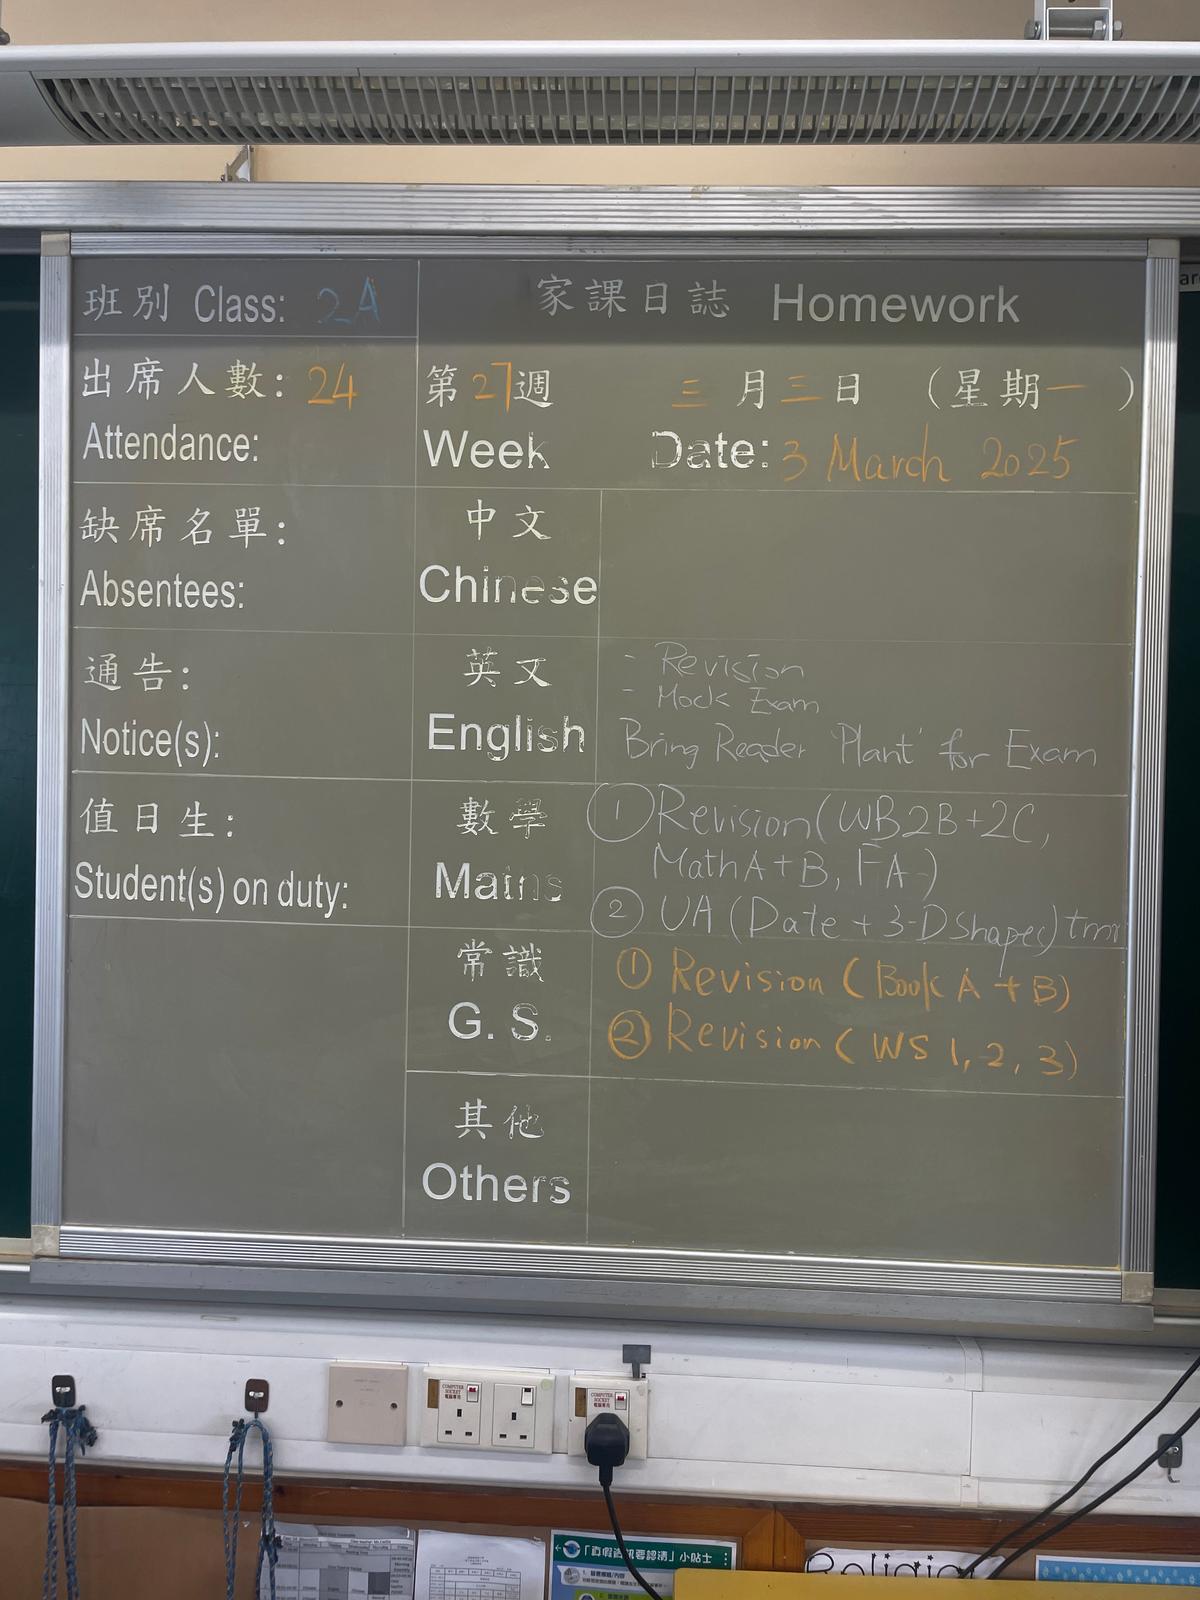 班別 Class: 2A
家課日誌 Homework
出席人數: 24
Attendance:
第27週
三月三日 (星期一)
Week
Date: 3 March 2025
缺席名單:
Absentees:
中文
Chinese
通告:
Notice(s):
英文
English
- Revision
- Mock Exam
Bring Reader 'Plant' for Exam
值日生:
Student(s) on duty:
數學
Maths
① Revision (WB2B+2C,
Math A+B, FA)
② UA (Date + 3-D shapes) tmr
常識
G. S.
① Revision (Book A + B)
② Revision (WS 1, 2, 3)
其他
Others
COMPUTER
SOCKET
電腦專用
COMPUTER
SOCKET
電腦專用
「真假資訊要認清」小貼士
Religio